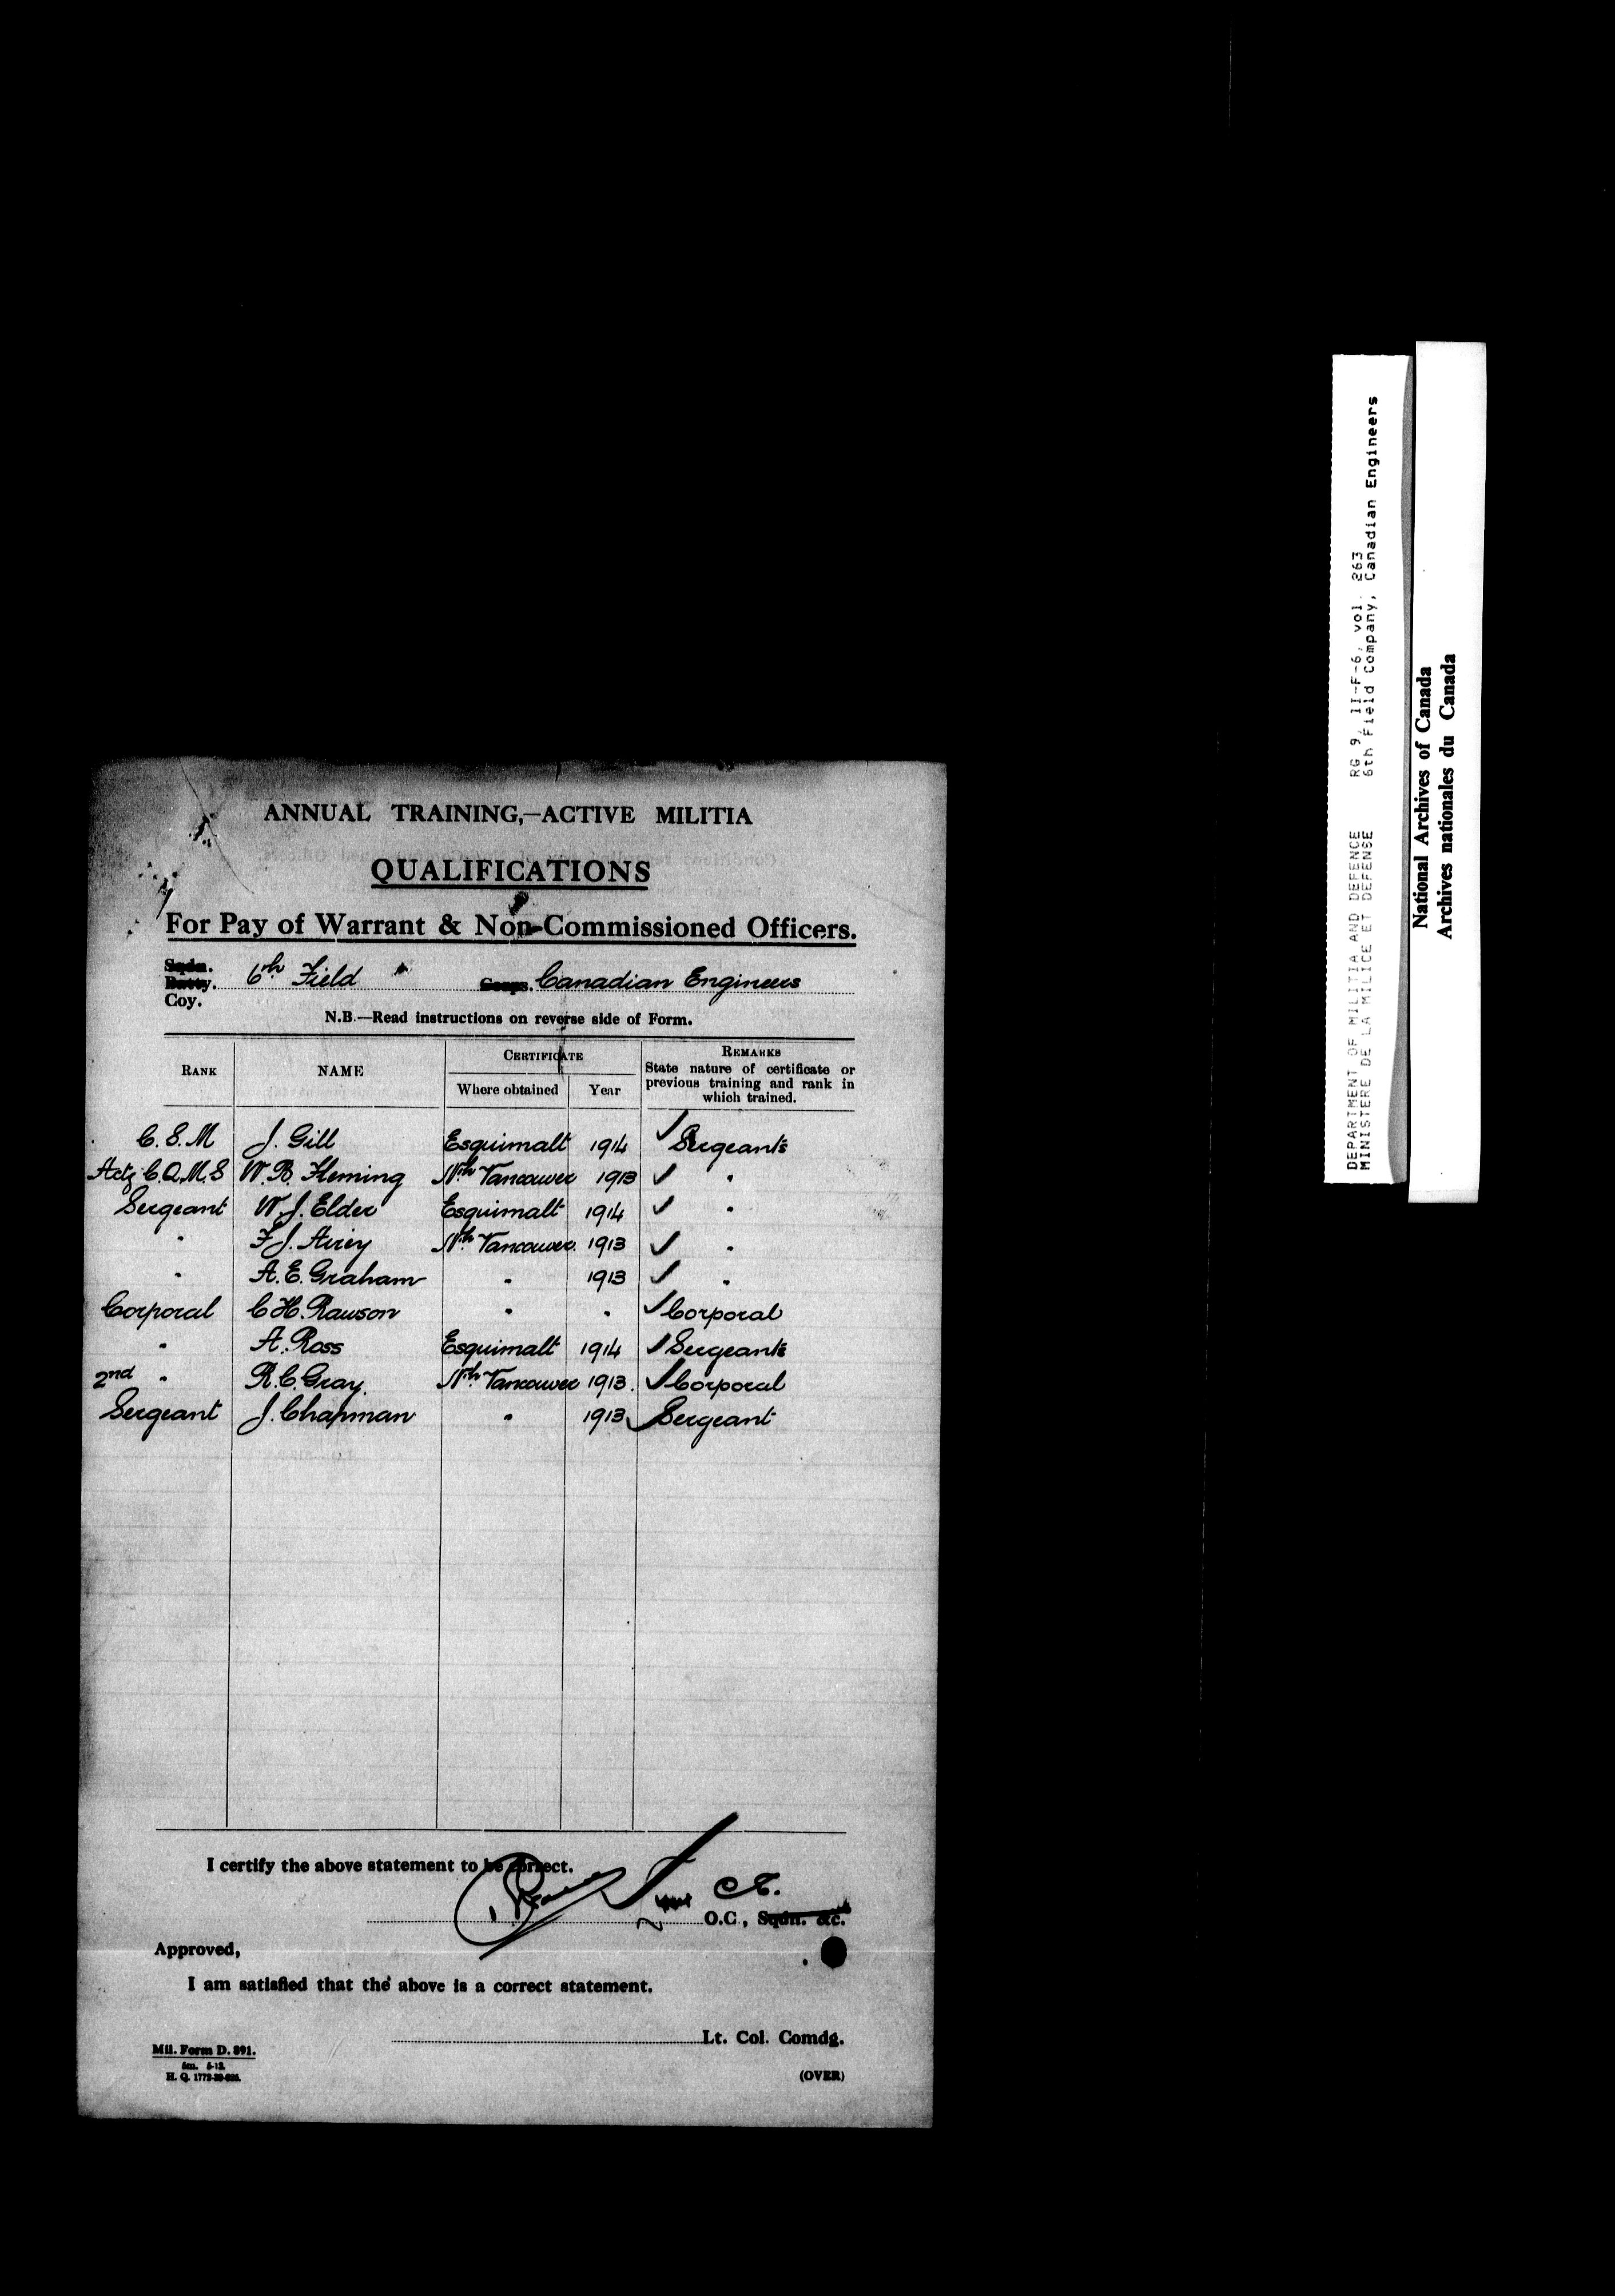 ANNUAL TRAINING,—ACTIVE MILITIA
QUALIFICATIONS
For Pay of Warrant & Non-Commissioned Officers.
Sqdn.
Batty. 6th Field Corps. Canadian Engineers
Coy.
N.B.—Read instructions on reverse side of Form.
RANK NAME CERTIFICATE Where obtained Year REMARKS State nature of certificate or previous training and rank in which trained.
C.S.M J. Gill Esquimalt 1914 ✓ Sergeants
Actg C.Q.M.S W.B. Fleming Nth Vancouver 1913 ✓ "
Sergeant W.J. Elder Esquimalt 1914 ✓ "
" F.J. Airey Nth Vancouver 1913 ✓ "
" A.E. Graham " 1913 ✓ "
Corporal C.H. Rawson " " ✓ Corporal
" A. Ross Esquimalt 1914 ✓ Sergeants
2nd " R.C. Gray. Nth Vancouver 1913. ✓ Corporal
Sergeant J. Chapman " 1913 ✓ Sergeant
I certify the above statement to be correct.
O.C., Sqdn. &c.
Approved,
I am satisfied that the above is a correct statement.
Lt. Col. Comdg.
Mil. Form D. 891.
5m. 5-13.
H. Q. 1772-39-
(OVER)
DEPARTMENT OF MILITIA AND DEFENCE RG 9, II-F-6, vol. 263
MINISTERE DE LA MILICE ET DEFENSE 6th Field Company, Canadian Engineers
National Archives of Canada
Archives nationales du Canada